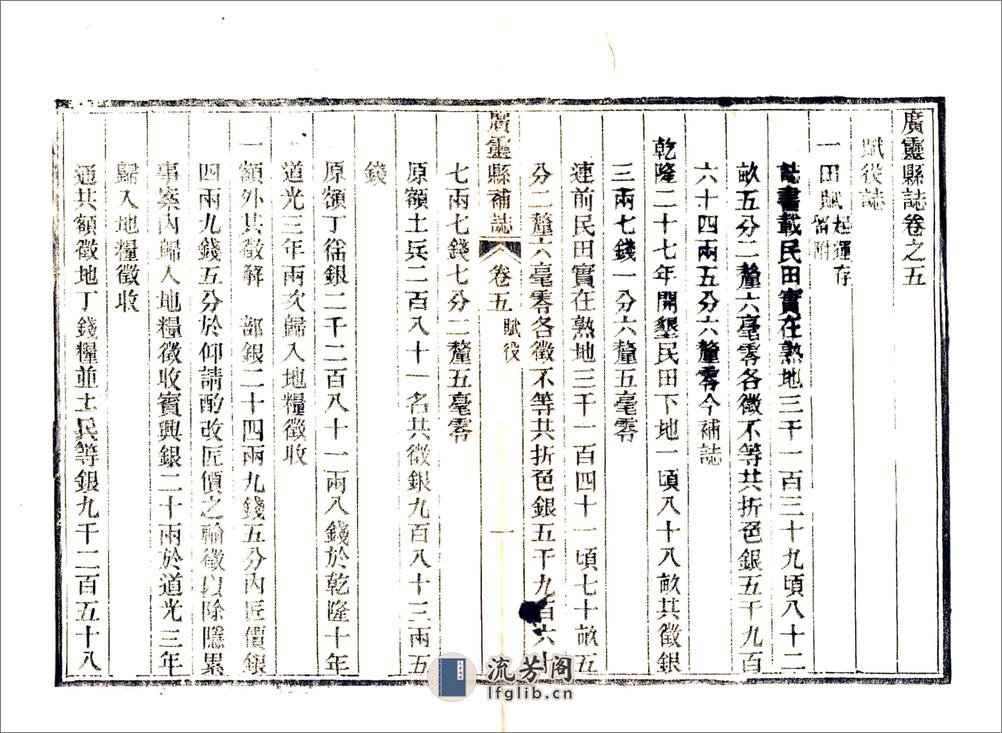 廣靈縣誌卷之五
賦役誌
一田賦起運存留附
誌書載民田實在熟地三千一百三十九頃八十二
畝五分二釐六毫零各徵不等共折色銀五千九百
六十四兩五分六釐零今補誌
乾隆二十七年開墾民田下地一頃八十八畝共徵銀
三兩七錢一分六釐五毫零
連前民田實在熟地三千一百四十一頃七十畝五
分二釐六毫零各徵不等共折色銀五千九百六十
廣靈縣補誌 卷五 賦役 一
七兩七錢七分二釐五毫零
原額土兵二百八十一名共徵銀九百八十三兩五
錢
原額丁徭銀二千二百八十一兩八錢於乾隆十年
道光三年兩次歸入地糧徵收
一額外共徵解 部銀二十四兩九錢五分內匠價銀
四兩九錢五分於仰請酌改匠價之輸徵以除隱累
事案內歸入地糧徵收賓興銀二十兩於道光三年
歸入地糧徵收
通共額徵地丁錢糧並土兵等銀九千二百五十八
流芳阁
lfglib.cn